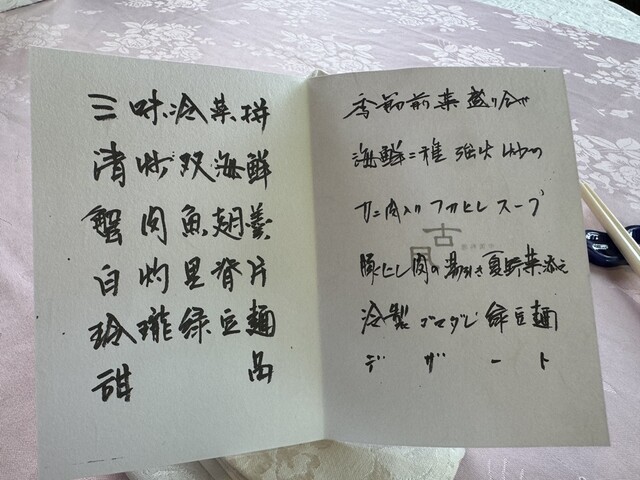 三味冷菜拼
清炒双海鮮
蟹肉魚翅羹
白灼里脊片
玲瓏緑豆麺
甜品
季節前菜盛り合わせ
海鮮二種強火炒め
カニ肉入りフカヒレスープ
豚ヒレ肉の湯引き夏野菜添え
冷製ゴマダレ緑豆麺
デザート
古